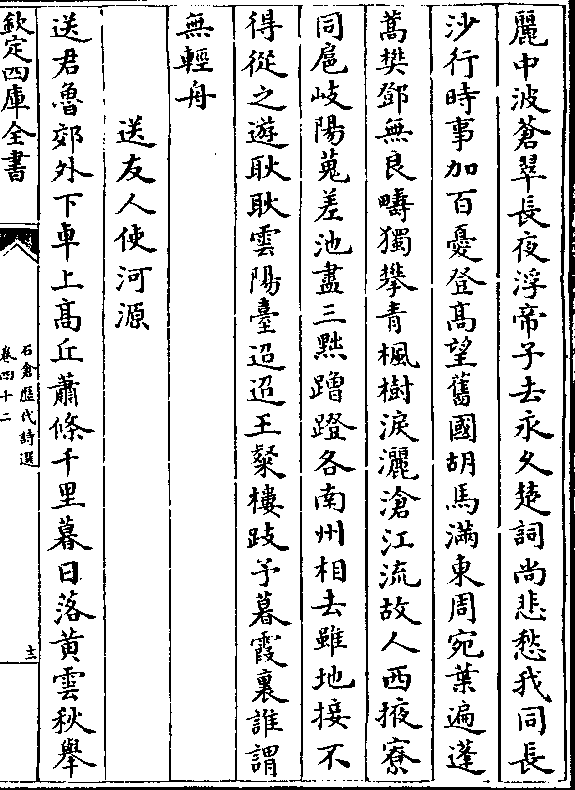 麗中波蒼翠長夜浮帝子去永久楚詞尚悲愁我同長
沙行時事加百憂登髙望舊國胡馬滿東周宛葉遍蓬
蒿樊鄧無良疇獨攀青楓樹淚灑滄江流故人西掖寮
同扈岐陽蒐差池盡三㸃蹭蹬各南州相去雖地接不
得從之遊耿耿雲陽臺迢迢王粲樓跂予暮霞裏誰謂
無輕舟
送友人使河源
送君魯郊外下車上髙丘蕭條千里暮日落黄雲秋舉
欽定四庫全書
石倉歷代詩選
卷四十二
十三